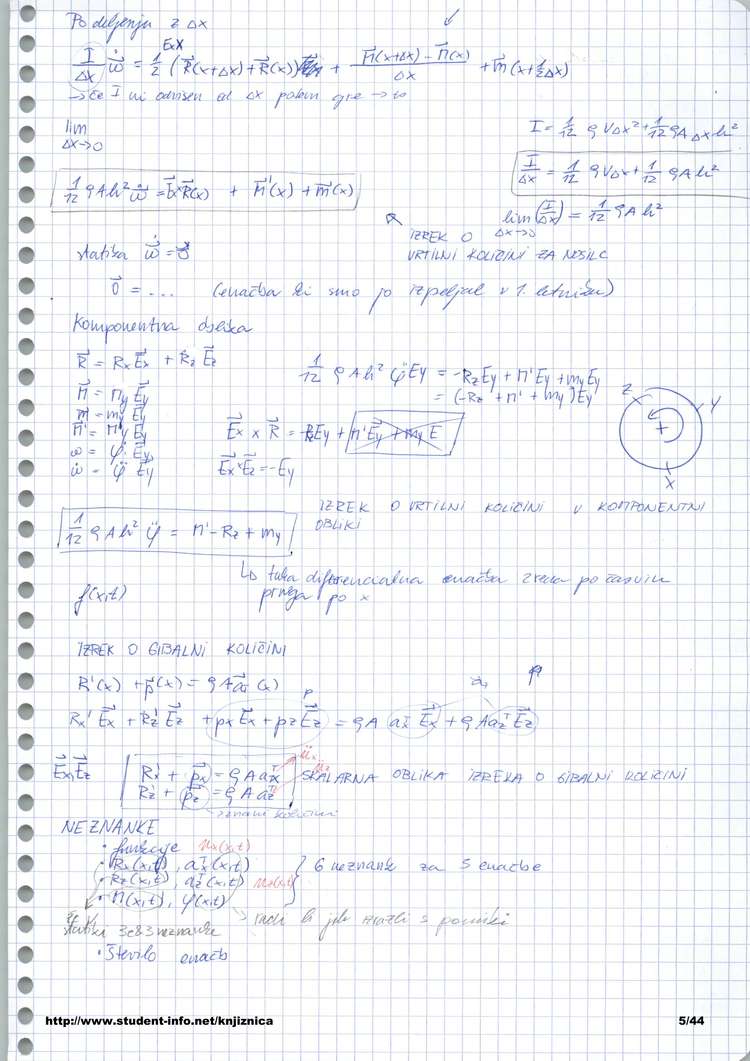 Po deljenju z Δx
I/Δx ω̇⃗ = 1/2 E⃗x × (R⃗(x+Δx) + R⃗(x)) + (M⃗(x+Δx) - M⃗(x))/Δx + m⃗(x+½Δx)
→ če I ni odvisen od Δx potem gre → to ∞
lim
Δx→0
I = 1/12 ρVΔx² + 1/12 ρAΔxh²
I/Δx = 1/12 ρVΔx + 1/12 ρAh²
1/12 ρAh² ω̇⃗ = E⃗x × R⃗(x) + M⃗'(x) + m⃗(x)
lim Δx→0 (I/Δx) = 1/12 ρAh²
IZREK O
VRTILNI KOLIČINI ZA NOSILC
statika ω̇⃗ = 0⃗
0⃗ = ... (enačba ki smo jo izpeljal v 1. letniku)
Komponentna
R⃗ = Rx E⃗x + Rz E⃗z
1/12 ρAh² φ̈ E⃗y = -Rz E⃗y + M' E⃗y + my E⃗y
M⃗ = My E⃗y
= (-Rz + M' + my) E⃗y
m⃗ = my E⃗y
M⃗' = M'y E⃗y
E⃗x × R⃗ = -Rz E⃗y + M' E⃗y + my E
ω = φ̇ E⃗y
ω̇ = φ̈ E⃗y
E⃗x × E⃗z = -E⃗y
z
y
+
x
1/12 ρAh² φ̈ = M' - Rz + my
IZREK O VRTILNI KOLIČINI V KOMPONENTNI
OBLIKI
↳ tuka diferencialna enačba 2 reda po času in
prvega po x
f(x,t)
IZREK O GIBALNI KOLIČINI
R⃗'(x) + p⃗(x) = ρA a⃗T(x)
Rx' E⃗x + Rz' E⃗z + px E⃗x + pz E⃗z = ρA axT E⃗x + ρA azT E⃗z
E⃗x, E⃗z
Rx' + px = ρA axT üx
Rz' + pz = ρA azT üz
SKALARNA OBLIKA IZREKA O GIBALNI KOLIČINI
→ znani količini
NEZNANKE
• funkcije ux(x,t)
• Rx(x,t), axT(x,t)
• Rz(x,t), azT(x,t) uz(x,t)
• M(x,t), φ(x,t)
6 neznank za 3 enačbe
→ radi bi jih izrazli s pomiki
statiki 3e 3 neznanke
• Število enačb
http://www.student-info.net/knjiznica
5/44